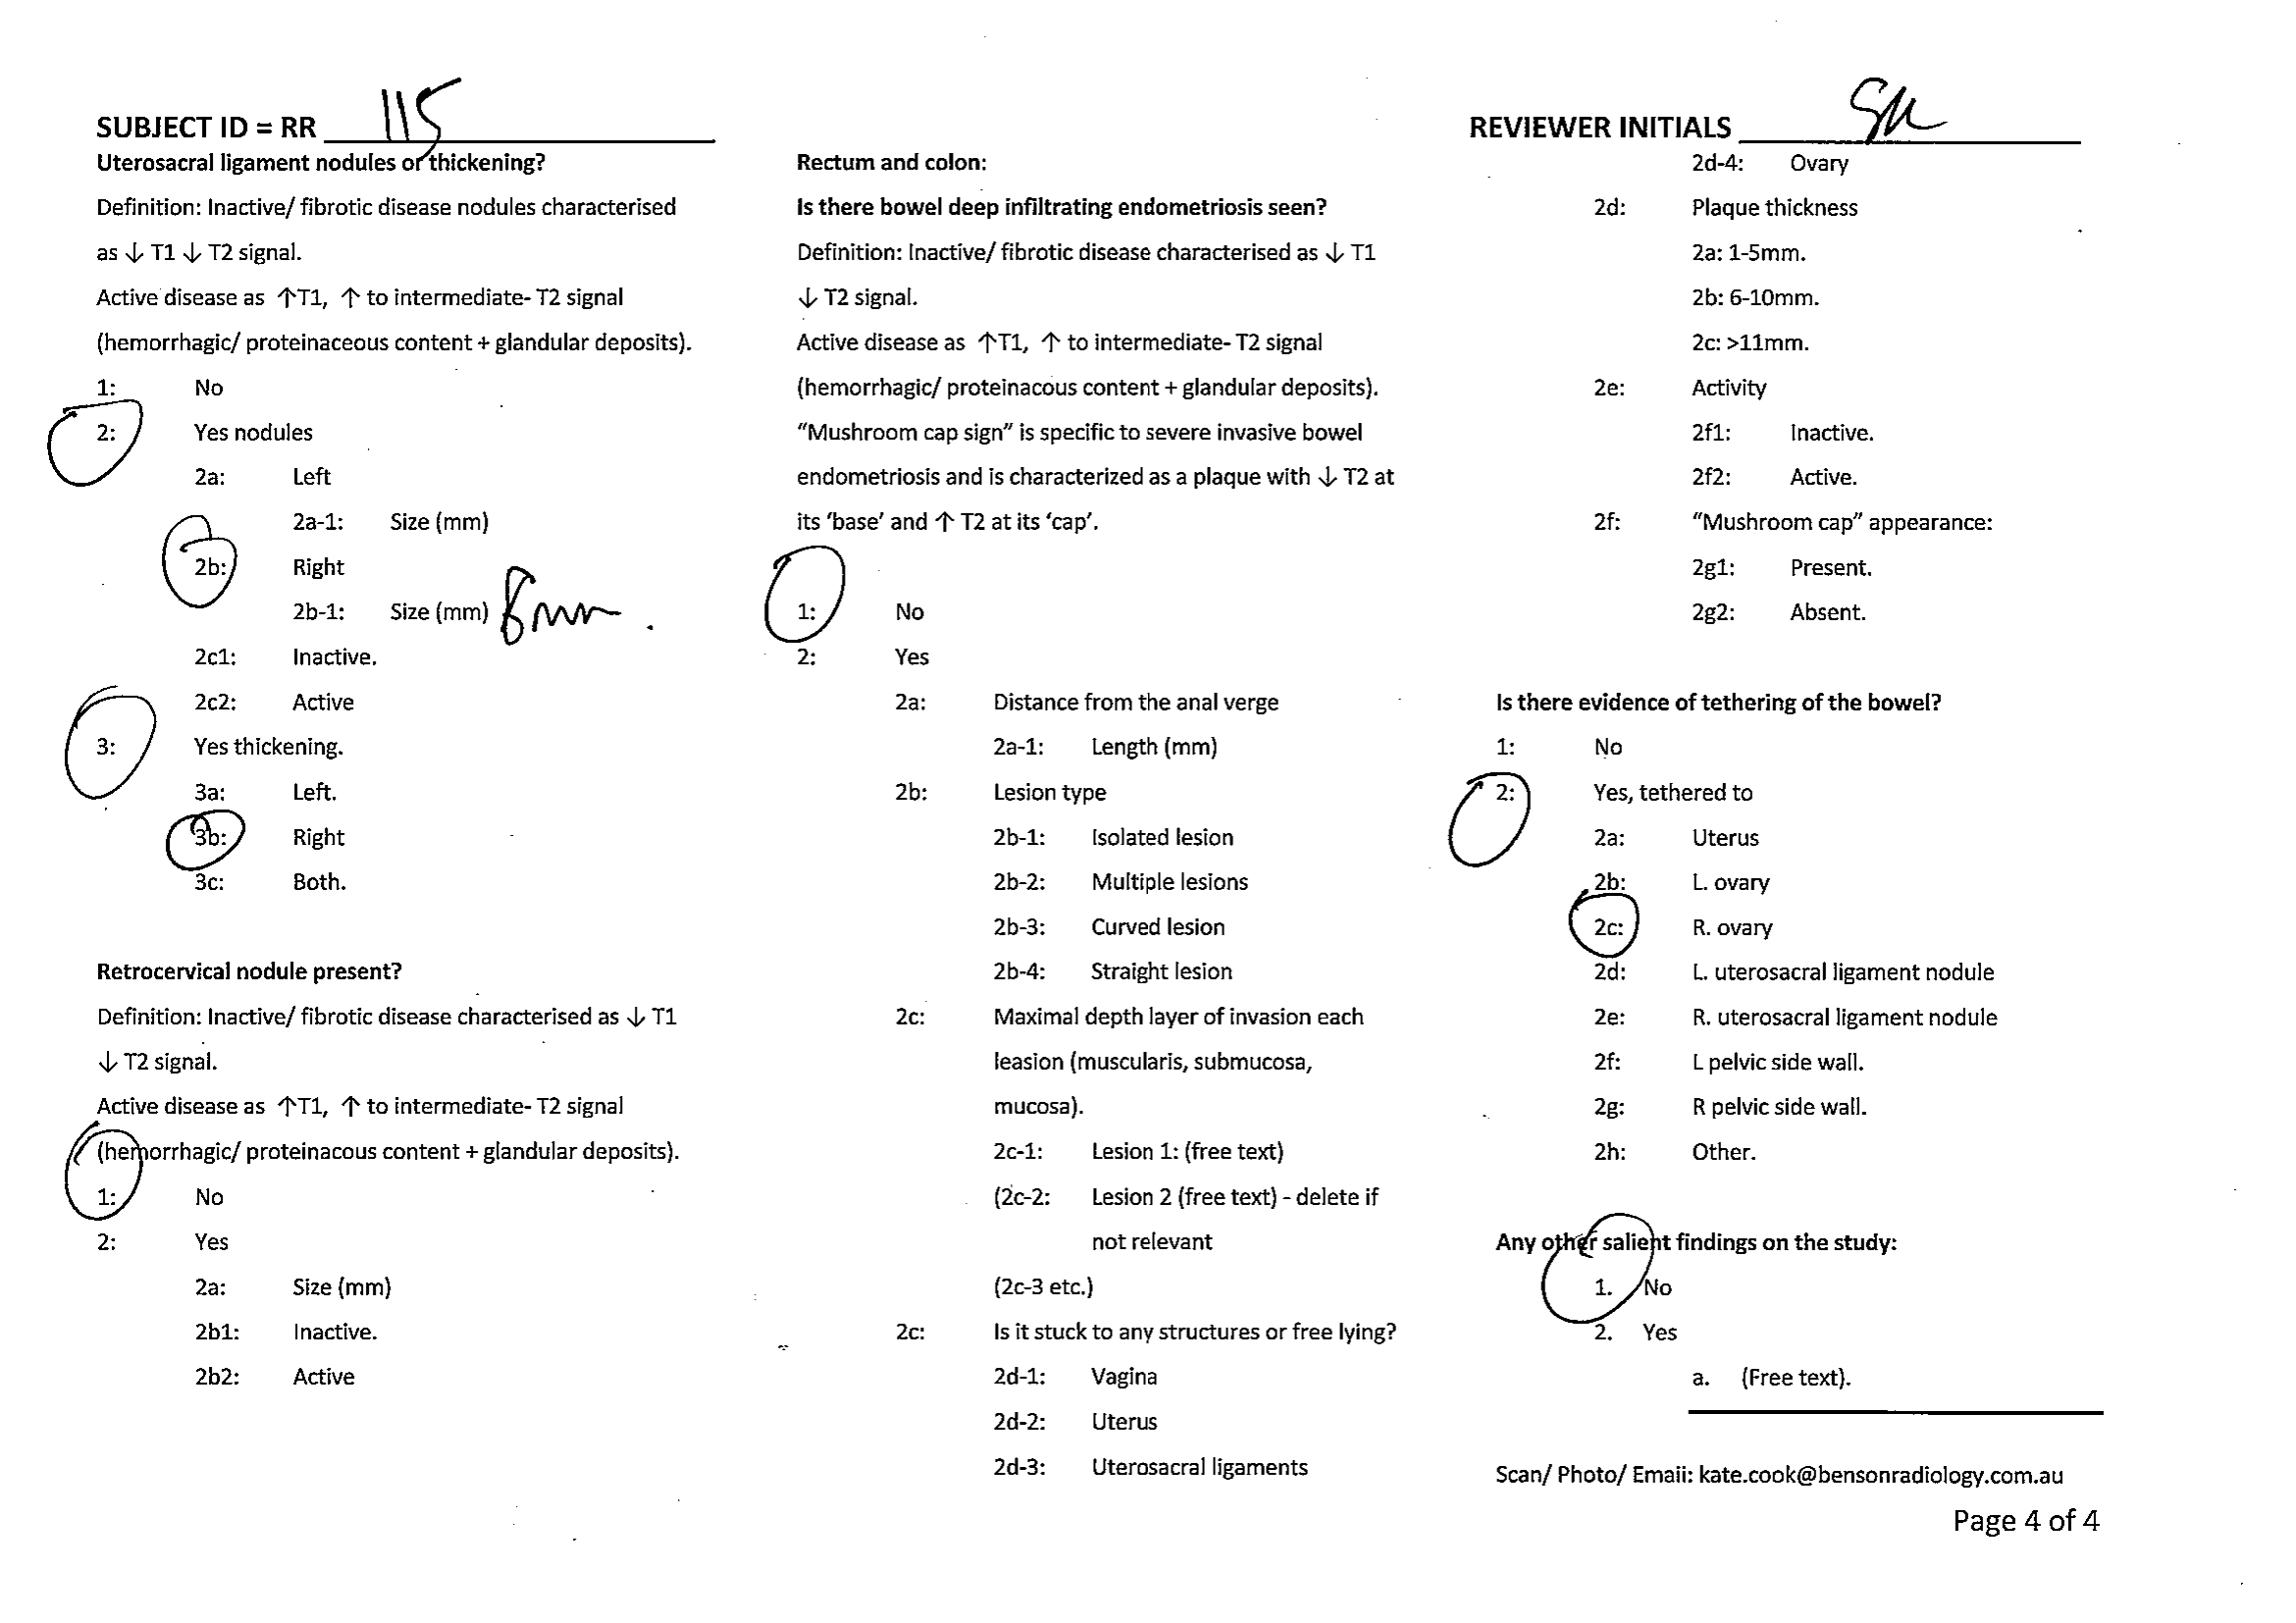 SUBJECT ID = RR 115
REVIEWER INITIALS SM
Uterosacral ligament nodules or thickening?
Definition: Inactive/ fibrotic disease nodules characterised
as ↓ T1 ↓ T2 signal.
Active disease as ↑T1, ↑ to intermediate- T2 signal
(hemorrhagic/ proteinaceous content + glandular deposits).
1: No
2: Yes nodules
2a: Left
2a-1: Size (mm)
2b: Right
2b-1: Size (mm) 8mm.
2c1: Inactive.
2c2: Active
3: Yes thickening.
3a: Left.
3b: Right
3c: Both.
Retrocervical nodule present?
Definition: Inactive/ fibrotic disease characterised as ↓ T1
↓ T2 signal.
Active disease as ↑T1, ↑ to intermediate- T2 signal
(hemorrhagic/ proteinacous content + glandular deposits).
1: No
2: Yes
2a: Size (mm)
2b1: Inactive.
2b2: Active
Rectum and colon:
Is there bowel deep infiltrating endometriosis seen?
Definition: Inactive/ fibrotic disease characterised as ↓ T1
↓ T2 signal.
Active disease as ↑T1, ↑ to intermediate- T2 signal
(hemorrhagic/ proteinacous content + glandular deposits).
“Mushroom cap sign” is specific to severe invasive bowel
endometriosis and is characterized as a plaque with ↓ T2 at
its ‘base’ and ↑ T2 at its ‘cap’.
1: No
2: Yes
2a: Distance from the anal verge
2a-1: Length (mm)
2b: Lesion type
2b-1: Isolated lesion
2b-2: Multiple lesions
2b-3: Curved lesion
2b-4: Straight lesion
2c: Maximal depth layer of invasion each
leasion (muscularis, submucosa,
mucosa).
2c-1: Lesion 1: (free text)
(2c-2: Lesion 2 (free text) - delete if
not relevant
(2c-3 etc.)
2c: Is it stuck to any structures or free lying?
2d-1: Vagina
2d-2: Uterus
2d-3: Uterosacral ligaments
2d-4: Ovary
2d: Plaque thickness
2a: 1-5mm.
2b: 6-10mm.
2c: >11mm.
2e: Activity
2f1: Inactive.
2f2: Active.
2f: “Mushroom cap” appearance:
2g1: Present.
2g2: Absent.
Is there evidence of tethering of the bowel?
1: No
2: Yes, tethered to
2a: Uterus
2b: L. ovary
2c: R. ovary
2d: L. uterosacral ligament nodule
2e: R. uterosacral ligament nodule
2f: L pelvic side wall.
2g: R pelvic side wall.
2h: Other.
Any other salient findings on the study:
1. No
2. Yes
a. (Free text).
Scan/ Photo/ Email: kate.cook@bensonradiology.com.au
Page 4 of 4